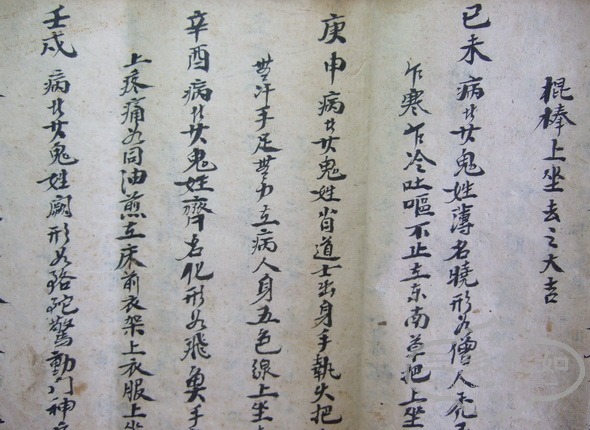 棍棒上坐去之大吉
己未 病者女鬼姓薄名曉形如僧人禿
乍寒乍冷吐嘔不止在东南草把上坐
庚申 病者女鬼姓省道士出身手執火把
无汗手足无力在病人身五色線上坐
辛酉 病者女鬼姓齊名化形如飛魚手
上疼痛如同油煎在床前衣架上衣服上坐
壬戌 病者女鬼姓 形如駱駝驚動門神